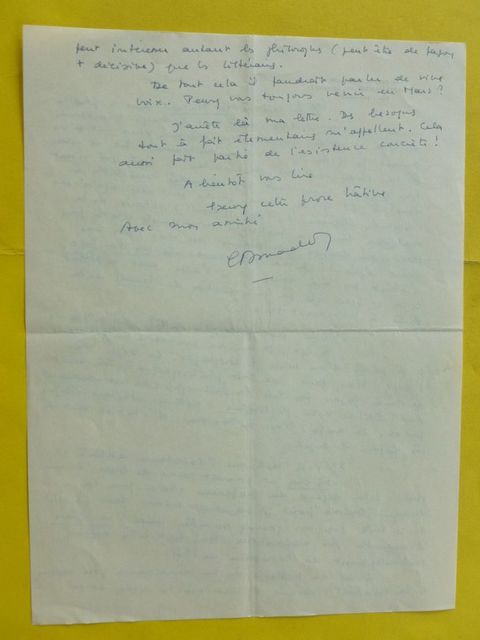 peut intéresser autant les philosophes (peut être de façon
+ décisive) que les littéraires.
De tout cela il faudrait parler de vive
voix. Pensez vous toujours venir en Mars ?
J'arrête là ma lettre. Des besognes
tout à fait élémentaires m'appellent. Cela
aussi fait partie de l'existence concrète !
A bientôt vous lire
Excusez cette prose hâtive
Avec mon amitié